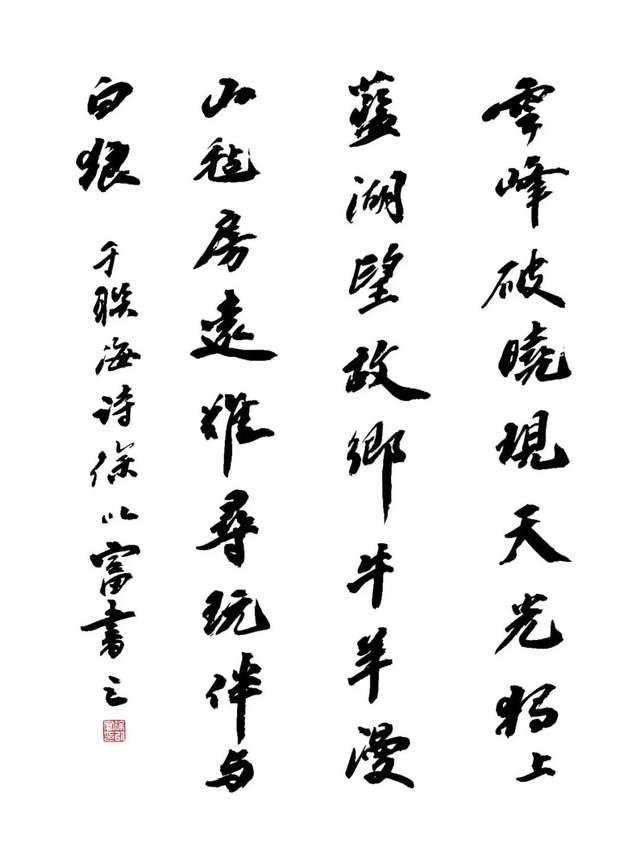 雪峰破曉現天光獨上
藍湖望故鄉牛羊漫
山毡房遠難尋玩伴与
白狼
于聯海詩徐以富書之